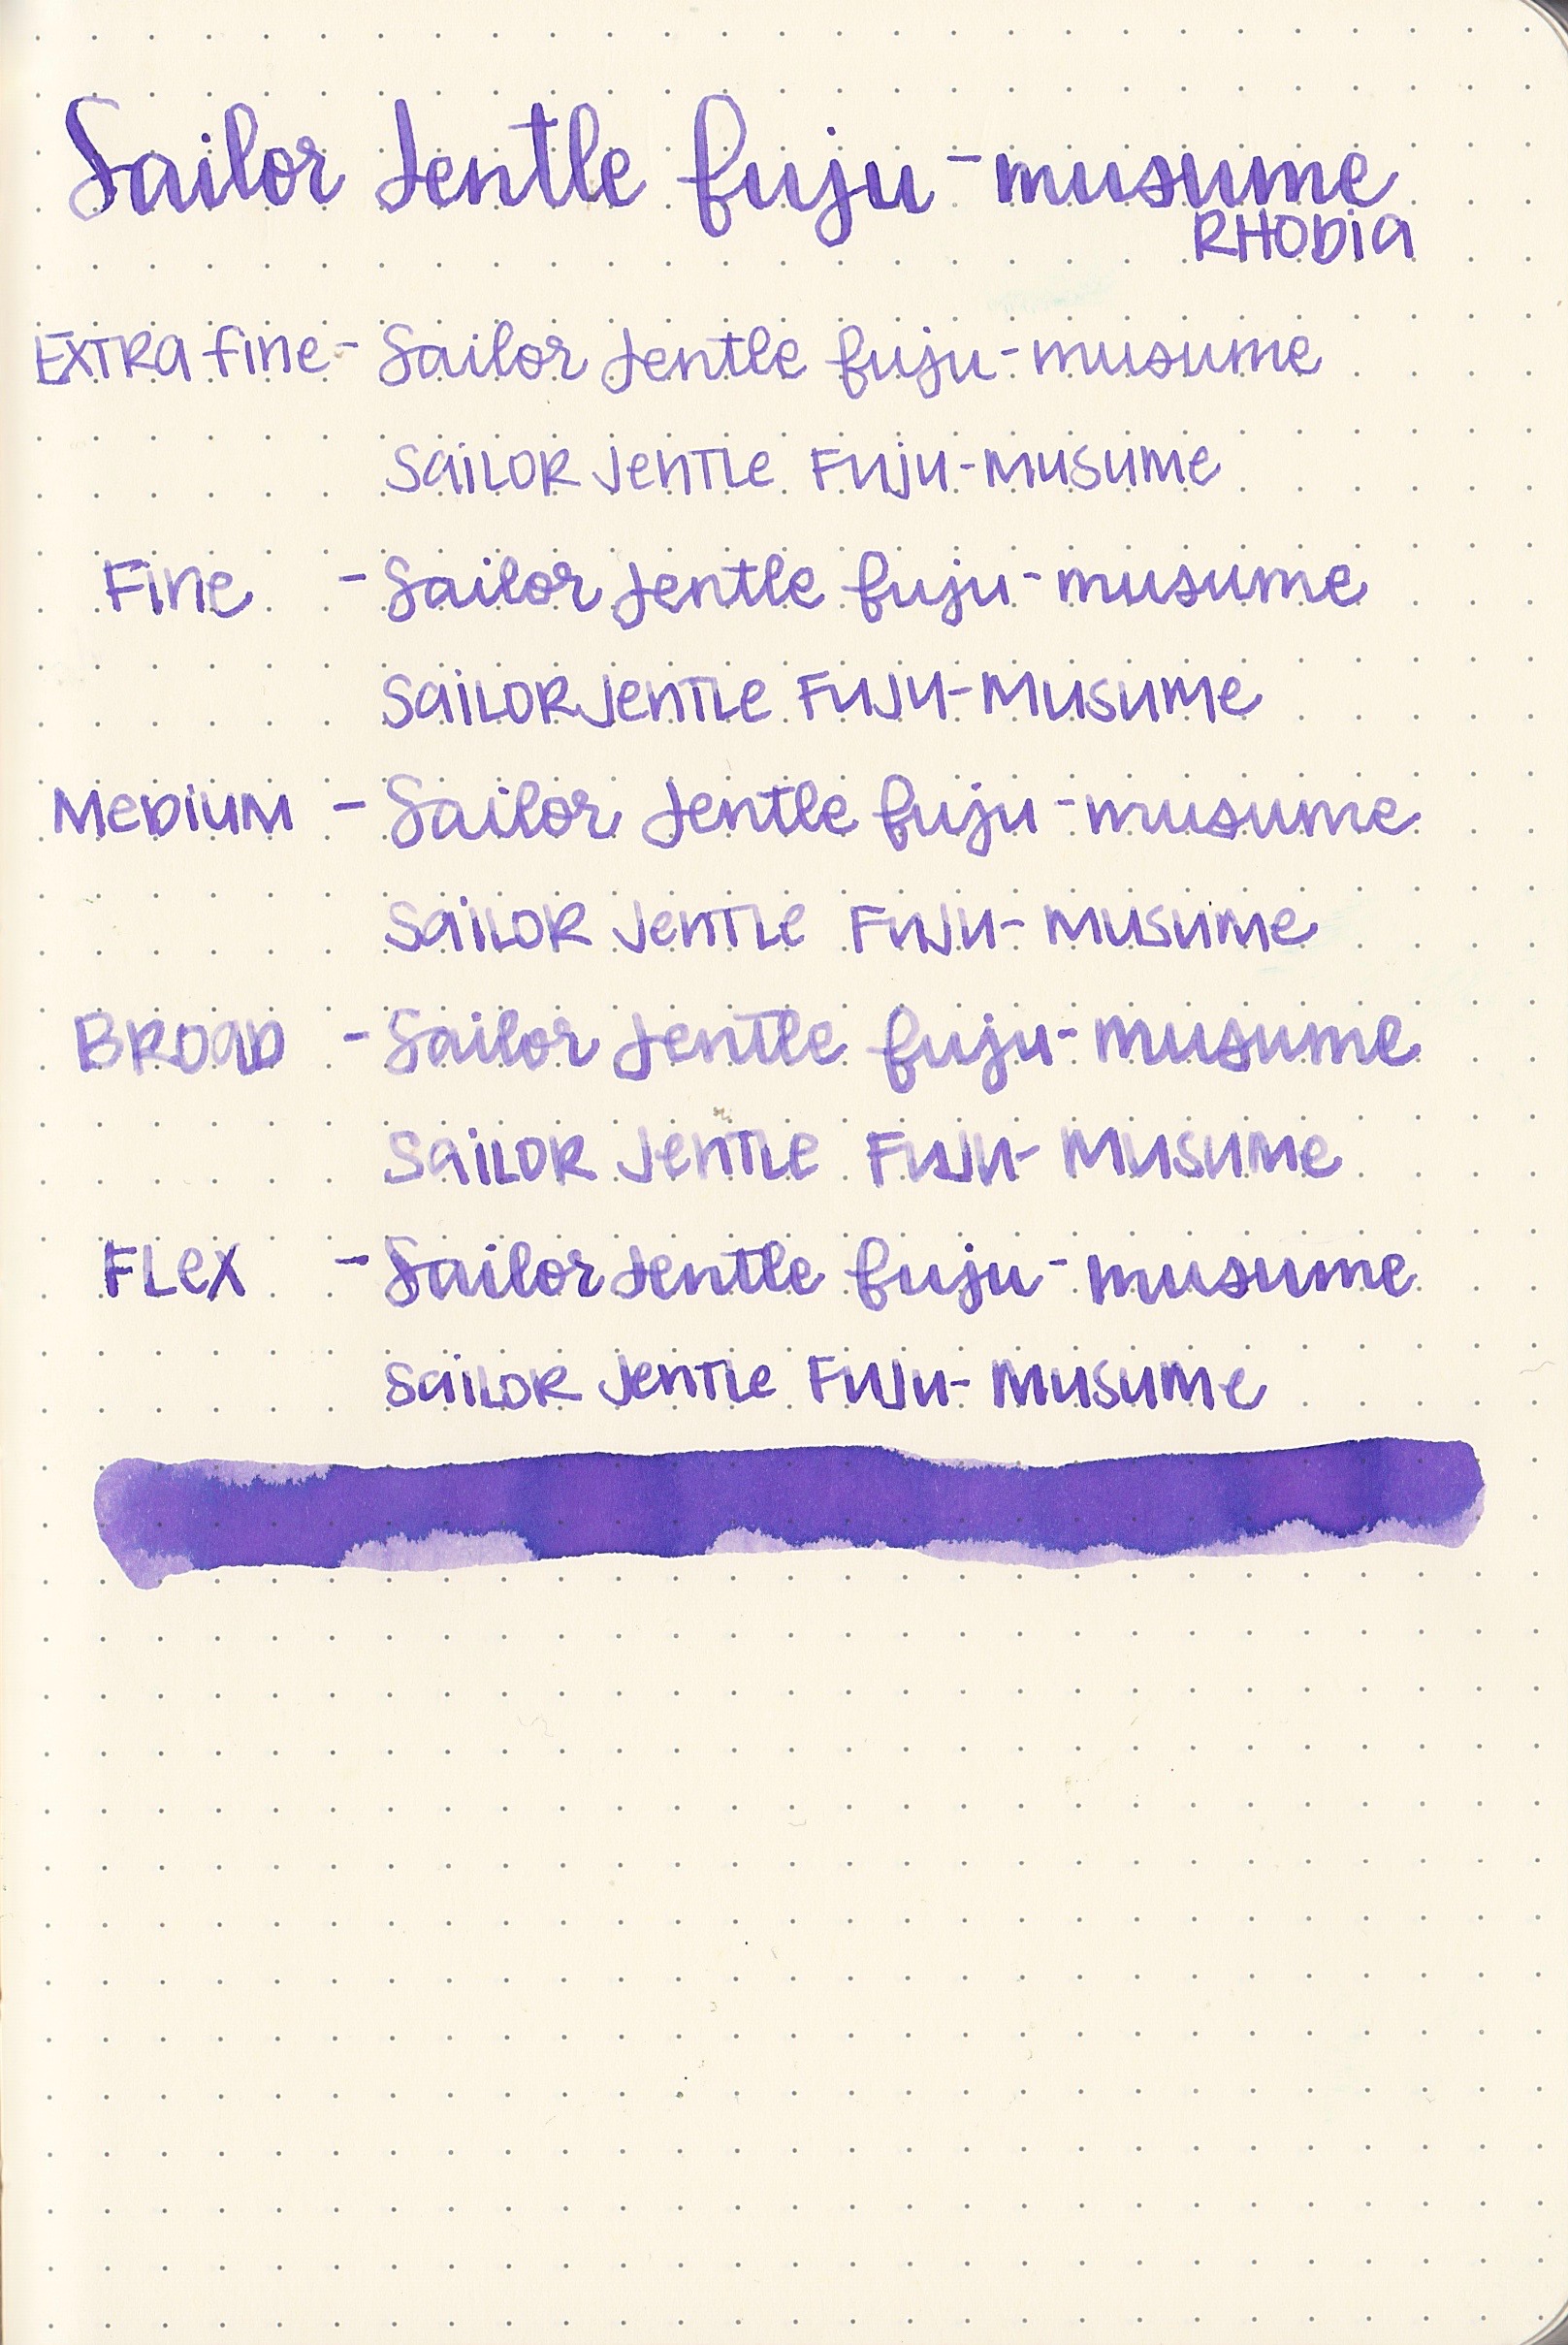 Sailor Jentle fuju-musume
RHODIA
EXTRA fine - Sailor Jentle fuju-musume
SAILOR JENTLE FUJU-MUSUME
Fine - Sailor Jentle fuju-musume
SAILOR JENTLE FUJU-MUSUME
MEDIUM - Sailor Jentle fuju-musume
SAILOR JENTLE FUJU-MUSUME
BROAD - Sailor Jentle fuju-musume
SAILOR JENTLE FUJU-MUSUME
FLEX - Sailor Jentle fuju-musume
SAILOR JENTLE FUJU-MUSUME